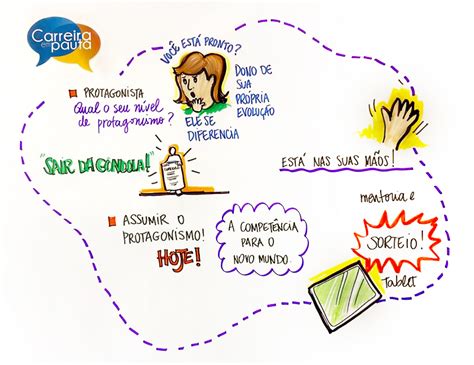 Carreira
em
pauta
VOCÊ ESTÁ PRONTO?
PROTAGONISTA
Qual o seu nível
de protagonismo?
DONO DE
SUA
PRÓPRIA
EVOLUÇÃO
ELE SE
DIFERENCIA
"SAIR DA GÔNDOLA!"
ESTÁ NAS SUAS MÃOS!
ASSUMIR O
PROTAGONISMO!
HOJE!
A COMPETÊNCIA
PARA O
NOVO MUNDO.
mentoria e
SORTEIO!
Tablet